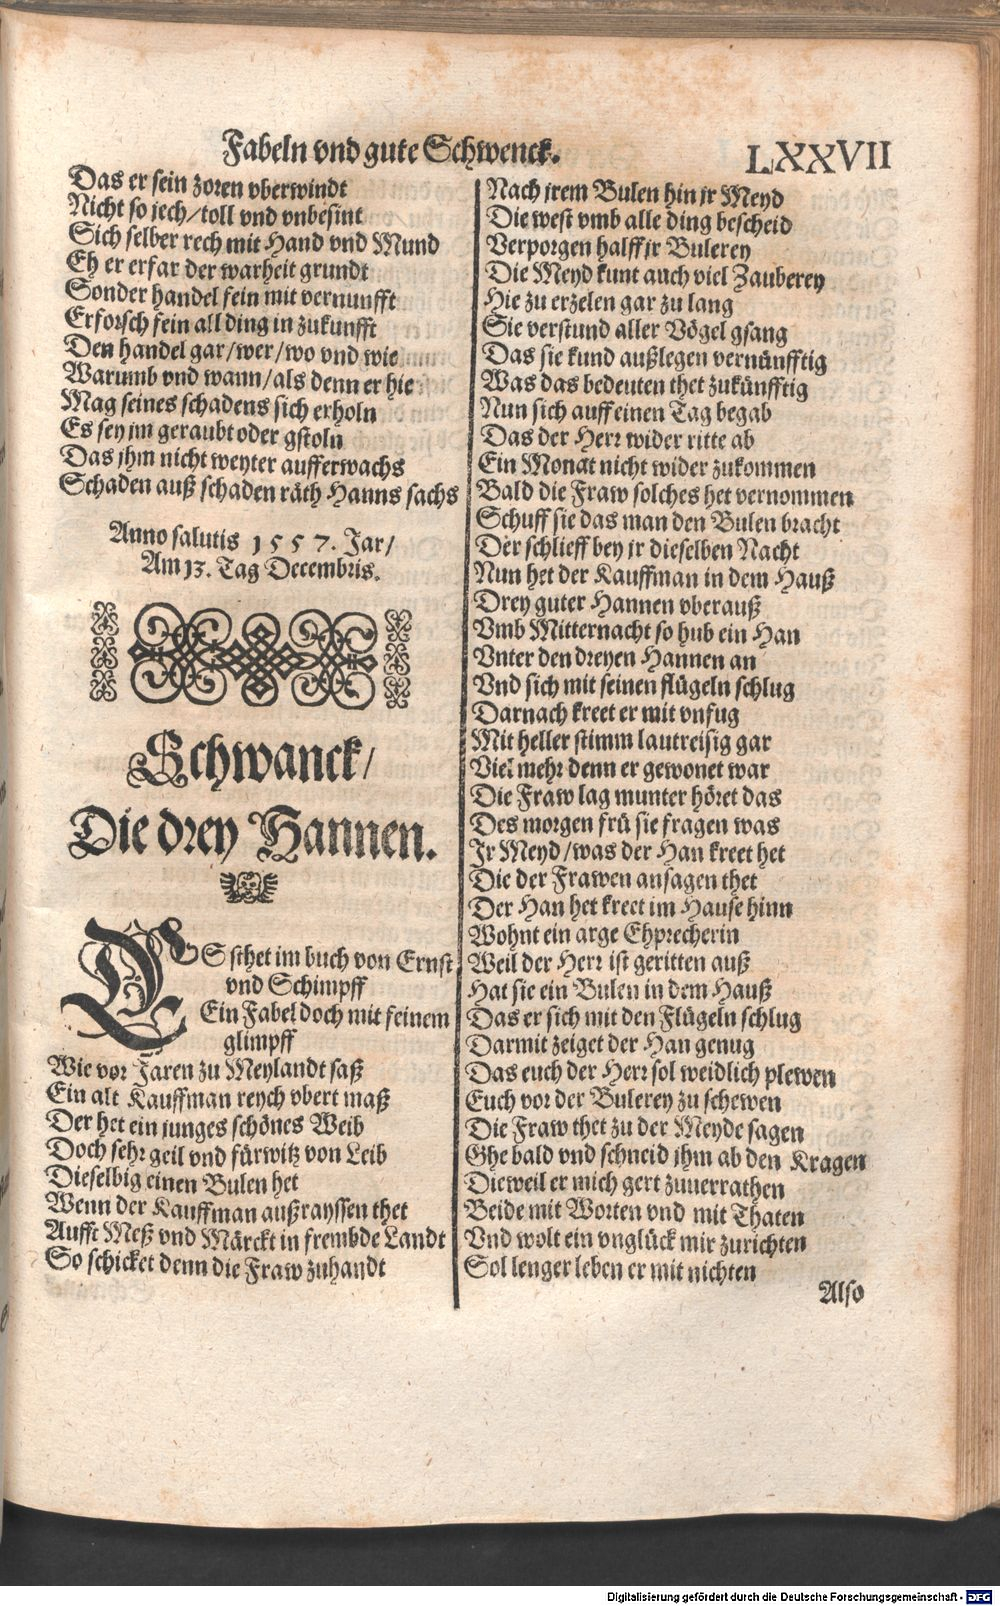 Fabeln vnd gute Schwenck.
LXXVII
Das er sein zoren vberwindt
Nicht so jech/toll vnd vnbesint
Sich selber rech mit Hand vnd Mund
Eh er erfar der warheit grundt
Sonder handel fein mit vernunfft
Erforsch fein all ding in zukunfft
Den handel gar/wer/wo vnd wie
Warumb vnd wann/als denn er hie
Mag seines schadens sich erholn
Es sey jm geraubt oder gstoln
Das jhm nicht weyter aufferwachs
Schaden auß schaden räth Hanns sachs
Anno salutis 1557. Jar/
Am 13. Tag Decembris.
Schwanck/
Die drey Hannen.
ES sthet im buch von Ernst
vnd Schimpff
Ein Fabel doch mit feinem
glimpff
Wie vor Jaren zu Meylandt saß
Ein alt Kauffman reych vbert maß
Der het ein junges schönes Weib
Doch sehr geil vnd fürwitz von Leib
Dieselbig einen Bulen het
Wenn der Kauffman außrayssen thet
Aufft Meß vnd Märckt in frembde Landt
So schicket denn die Fraw zuhandt
Nach jrem Bulen hin jr Meyd
Die west vmb alle ding bescheid
Verporgen halff jr Bulerey
Die Meyd kunt auch viel Zauberey
Hie zu erzelen gar zu lang
Sie verstund aller Vögel gsang
Das sie kund außlegen vernünfftig
Was das bedeuten thet zukünfftig
Nun sich auff einen Tag begab
Das der Herr wider ritte ab
Ein Monat nicht wider zukommen
Bald die Fraw solches het vernommen
Schuff sie das man den Bulen bracht
Der schlieff bey jr dieselben Nacht
Nun het der Kauffman in dem Hauß
Drey guter Hannen vberauß
Vmb Mitternacht so hub ein Han
Vnter den dreyen Hannen an
Vnd sich mit seinen flügeln schlug
Darnach kreet er mit vnfug
Mit heller stimm lautreisig gar
Viel mehr denn er gewonet war
Die Fraw lag munter höret das
Des morgen frü sie fragen was
Jr Meyd/was der Han kreet het
Die der Frawen ansagen thet
Der Han het kreet im Hause hinn
Wohnt ein arge Ehprecherin
Weil der Herr ist geritten auß
Hat sie ein Bulen in dem Hauß
Das er sich mit den Flügeln schlug
Darmit zeiget der Han genug
Das euch der Herr sol weidlich plewen
Euch vor der Bulerey zu schewen
Die Fraw thet zu der Meyde sagen
Ghe bald vnd schneid jhm ab den Kragen
Dieweil er mich gert zuuerrathen
Beide mit Worten vnd mit Thaten
Vnd wolt ein vnglück mir zurichten
Sol lenger leben er mit nichten
Also
Digitalisierung gefördert durch die Deutsche Forschungsgemeinschaft - DFG